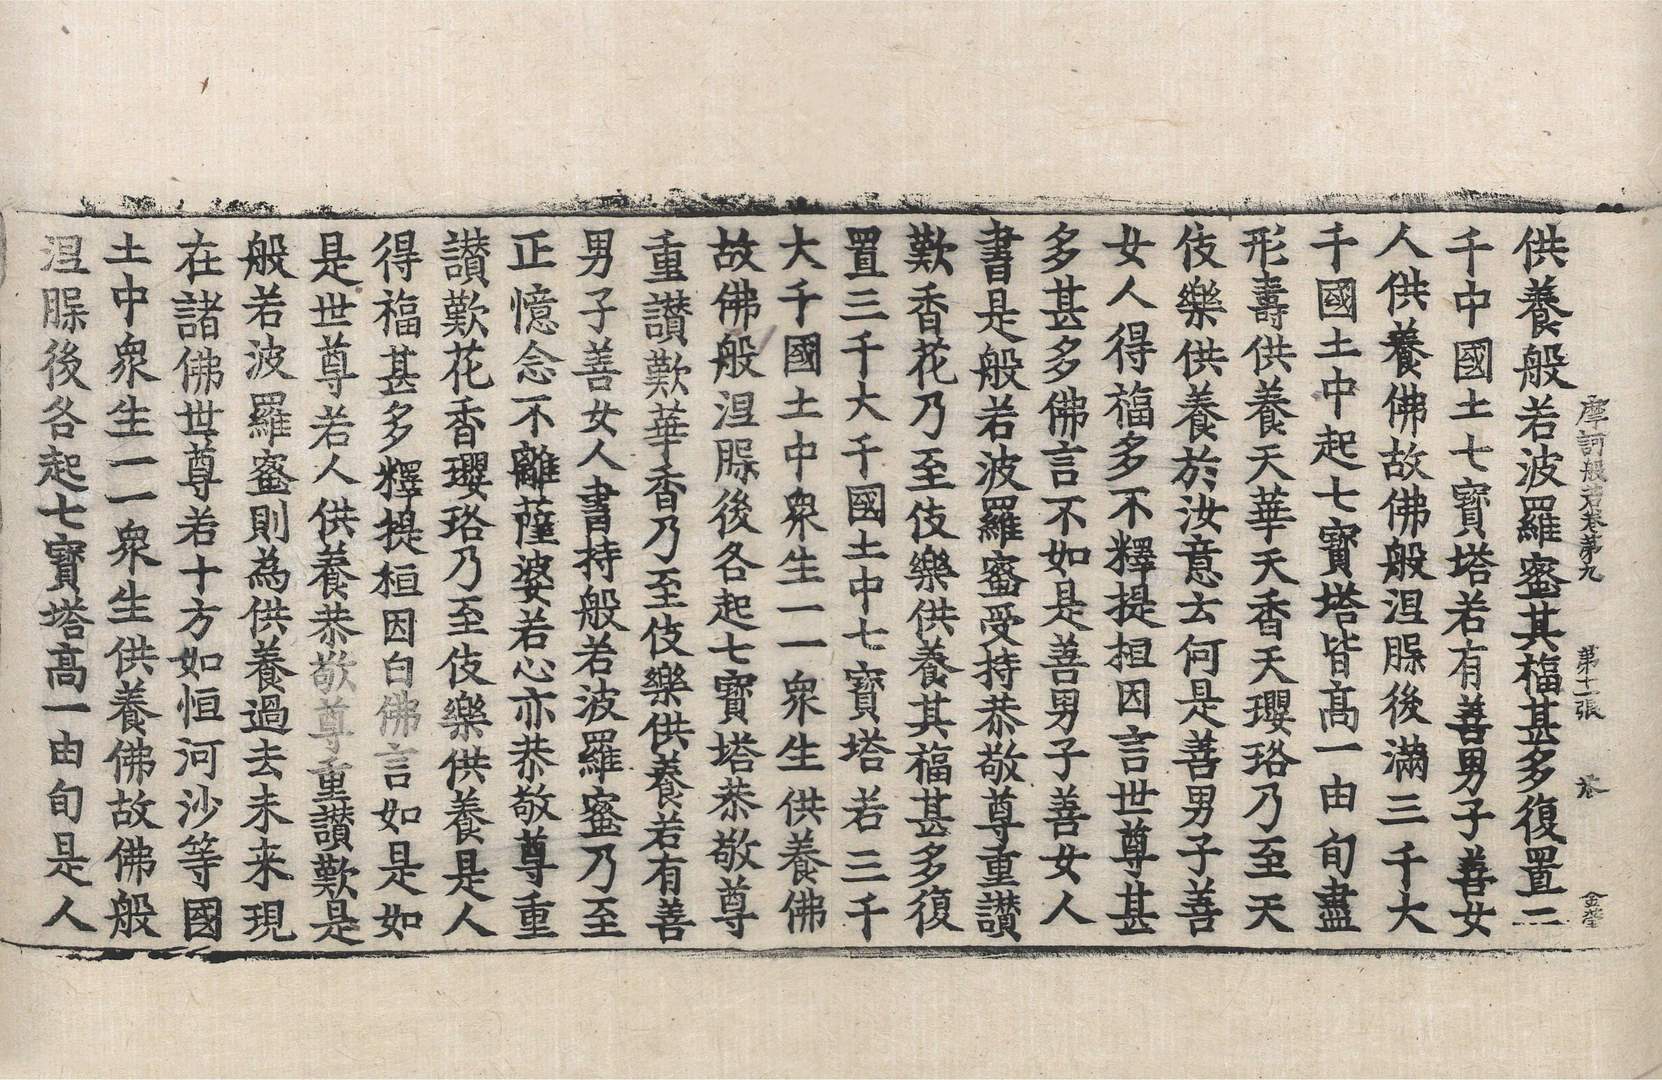 摩訶般若卷第九 第十一張 恭 金瑩
供養般若波羅蜜其福甚多復置二
千中國土七寶塔若有善男子善女
人供養佛故佛般涅脲後滿三千大
千國土中起七寶塔皆高一由旬盡
形壽供養天華天香天瓔珞乃至天
伎樂供養於汝意去何是善男子善
女人得福多不釋提桓因言世尊甚
多甚多佛言不如是善男子善女人
書是般若波羅蜜受持恭敬尊重讃
歎香花乃至伎樂供養其福甚多復
置三千大千國土中七寶塔若三千
大千國土中衆生一一衆生供養佛
故佛般涅脲後各起七寶塔恭敬尊
重讃歎華香乃至伎樂供養若有善
男子善女人書持般若波羅蜜乃至
正憶念不離薩婆若心亦恭敬尊重
讃歎花香瓔珞乃至伎樂供養是人
得福甚多釋提桓因白佛言如是如
是世尊若人供養恭敬尊重讃歎是
般若波羅蜜則為供養過去未來現
在諸佛世尊若十方如恒河沙等國
土中衆生一一衆生供養佛故佛般
涅脲後各起七寶塔高一由旬是人